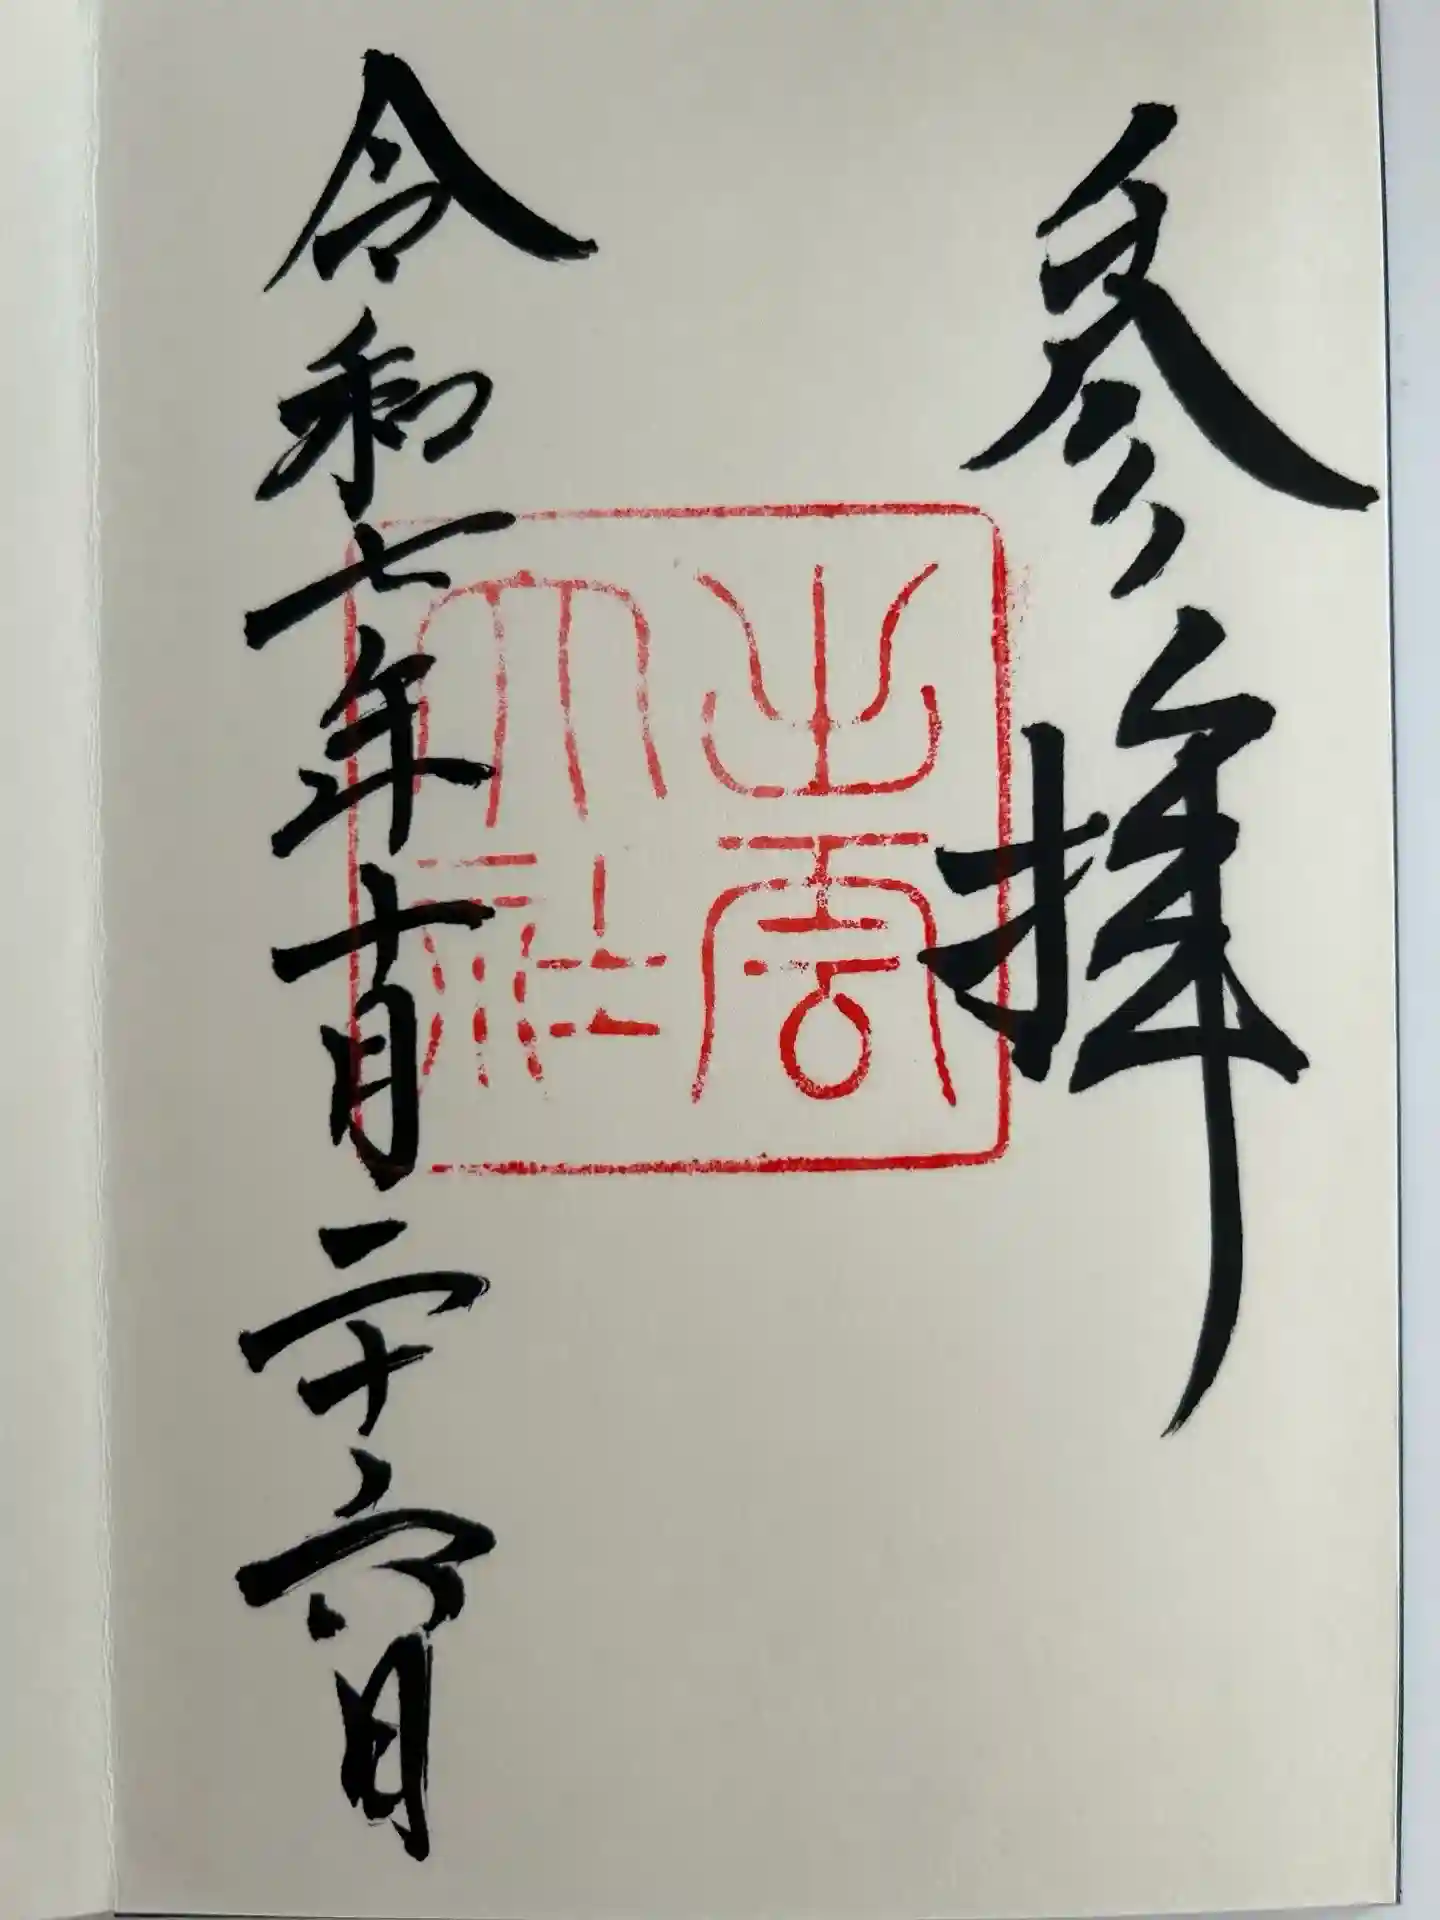 参拝
出雲
大社
令和七年十月二十六日